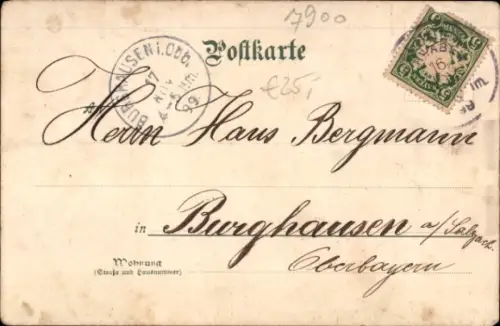 7900
Postkarte
BURGHAUSEN i. Obb.
17
NOV
99
€25,-
Herrn Hans Bergmann
in Burghausen a/Salzach
Oberbayern
Wohnung
(Straße und Hausnummer)